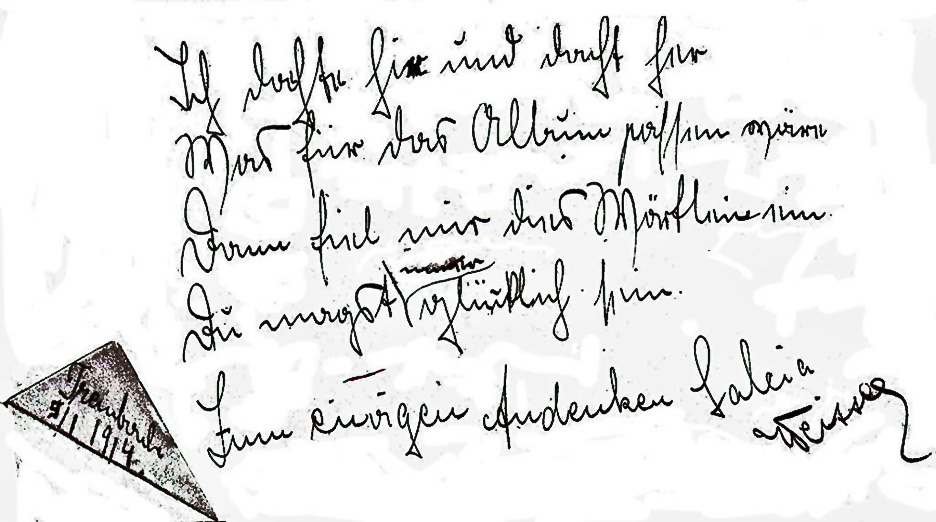 Ich dachte hin und dacht her
Was für das Album passen wäre
Dann fiel mir dies Wörtlein ein.
Du magst immer glücklich sein.
Zum ewigen Andenken Salcia
Weissag
8/1 1914.